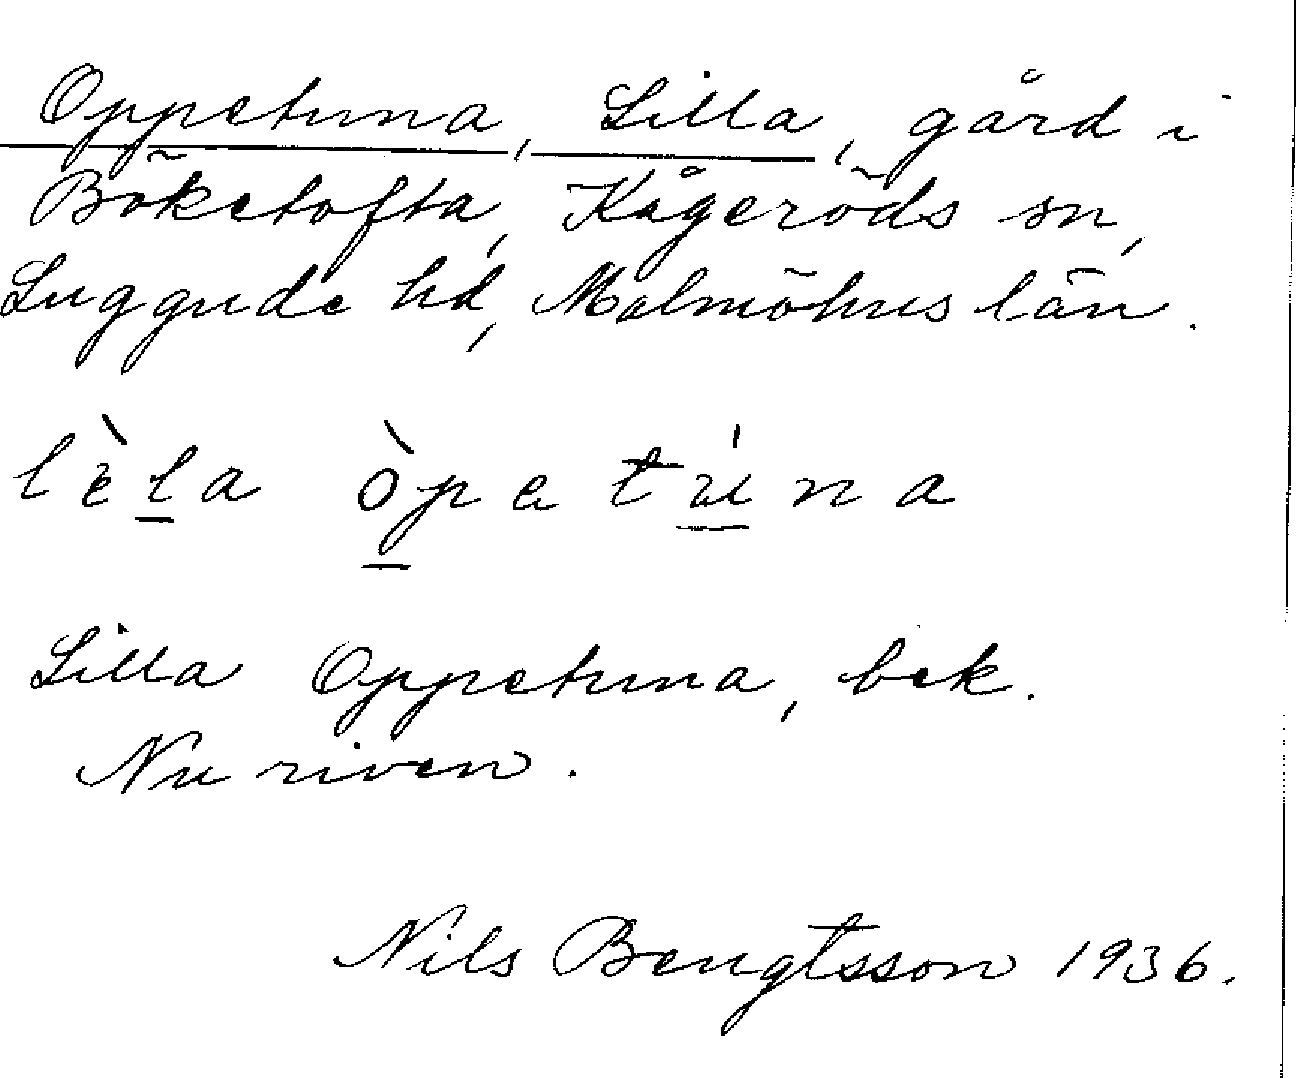 Oppetuna, Lilla, gård i
Böketofta, Kågeröds sn,
Luggude hd, Malmöhus län.
lèla òpatúna
Lilla Oppetuna, bek.
Nu riven.
Nils Bengtsson 1936.